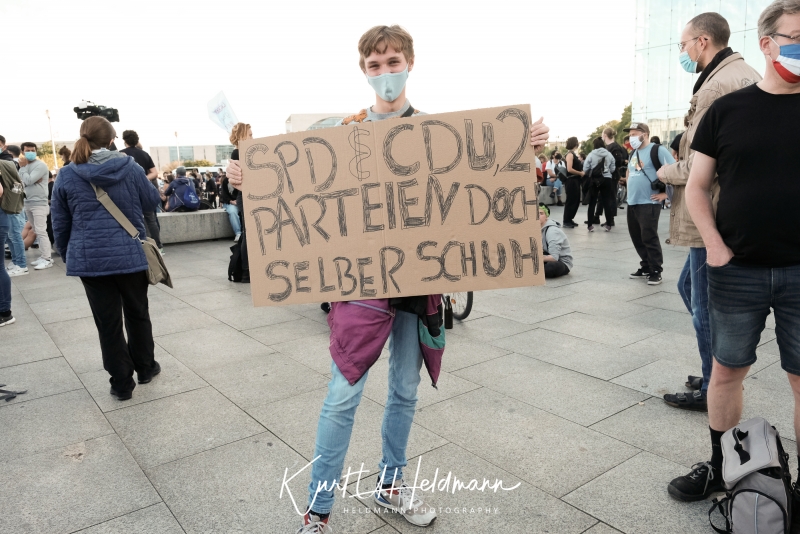 SPD & CDU, 2
PARTEIEN DOCH
SELBER SCHUH
Kurt H Heldmann
HELDMANN PHOTOGRAPHY